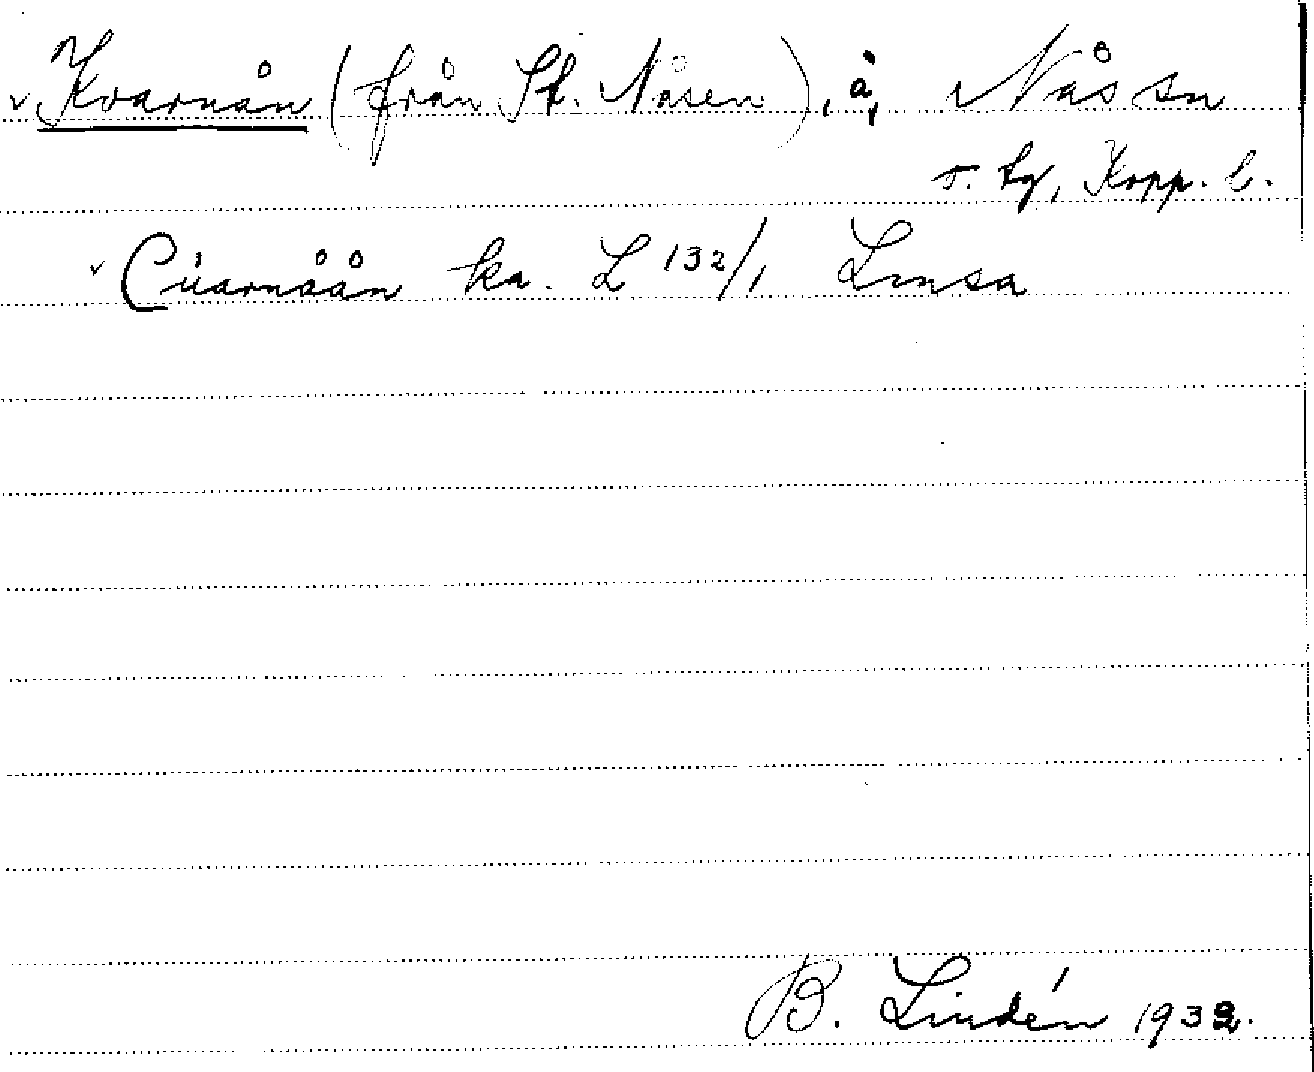 v Kvarnån (från St. Nåsen), å, Nås sn
v Cuarnåån ka. L 132/1 Lmsa
B. Lindén 1932.